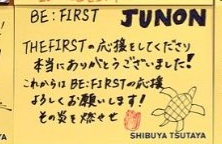 BE:FIRST JUNON
THEFIRSTの応援をしてくださり
本当にありがとうございました!
これからはBE:FIRSTの応援
よろしくお願いします!
その炎を燃やせ
SHIBUYA TSUTAYA